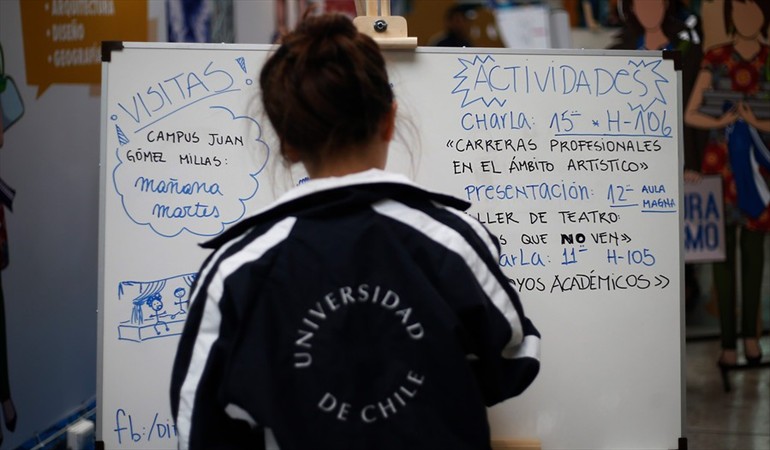 DISEÑO
GEOGRAFÍA
VISITAS
CAMPUS JUAN
GÓMEZ MILLAS:
mañana
martes
ACTIVIDADES
CHARLA: 15:00 * H-106
«CARRERAS PROFESIONALES
EN EL ÁMBITO ARTÍSTICO»
PRESENTACIÓN: 12:00 AULA
MAGNA
DE TEATRO:
QUE NO VEN»
11:00 H-105
ACADÉMICOS»
UNIVERSIDAD
DE CHILE